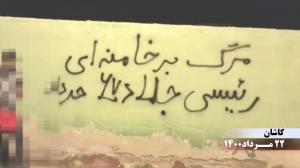 مرگ بر خامنه‌ای
رئیسی جلاد ۶۷
کاشان
۲۲ مرداد ۱۴۰۰